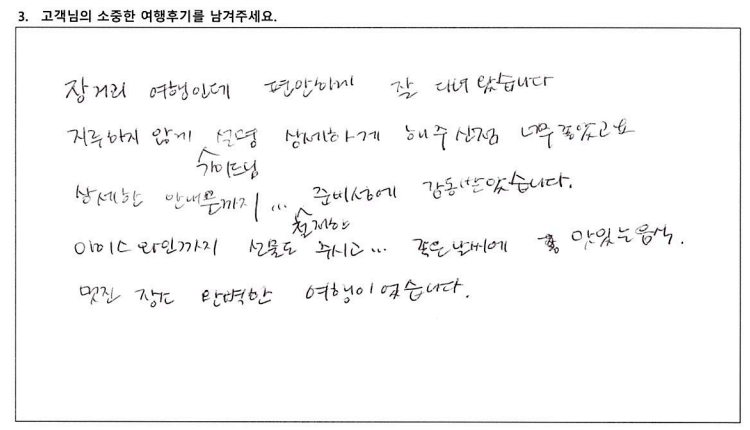 3. 고객님의 소중한 여행후기를 남겨주세요.
장거리 여행인데 편안하게 잘 다녀 왔습니다
지루하지 않게 설명 상세하게 해주신점 너무 좋았고요
가이드님
상세한 안내문까지... 준비성에 감동받았습니다.
철저한
아이스 와인까지 선물도 주시고... 좋은날씨에 맛있는음식.
멋진 장소 완벽한 여행이었습니다.